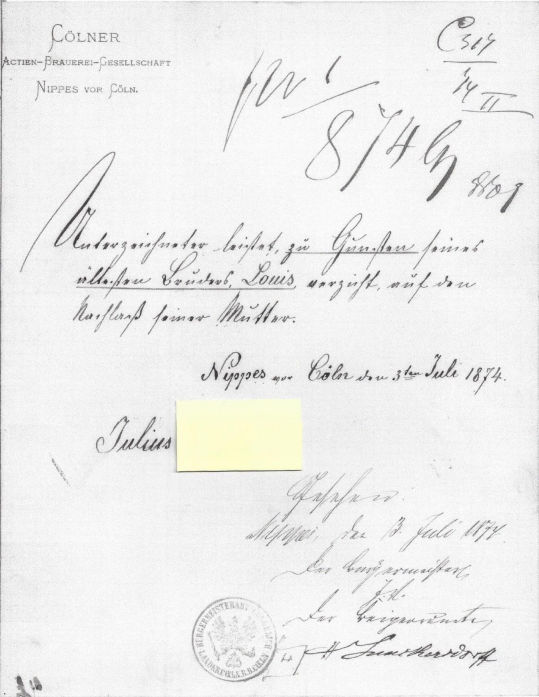 CÖLNER
ACTIEN-BRAUEREI-GESELLSCHAFT
NIPPES VOR CÖLN.
C 317
74 II
874
Unterzeichneter leistet, zu Gunsten seines
ältesten Bruders, Louis, verzicht, auf den
Nachlaß seiner Mutter.
Nippes vor Cöln den 3ten Juli 1874.
Julius
Gesehen:
Nippes, den 3. Juli 1874
Der Bürgermeister
Der Beigeordnete